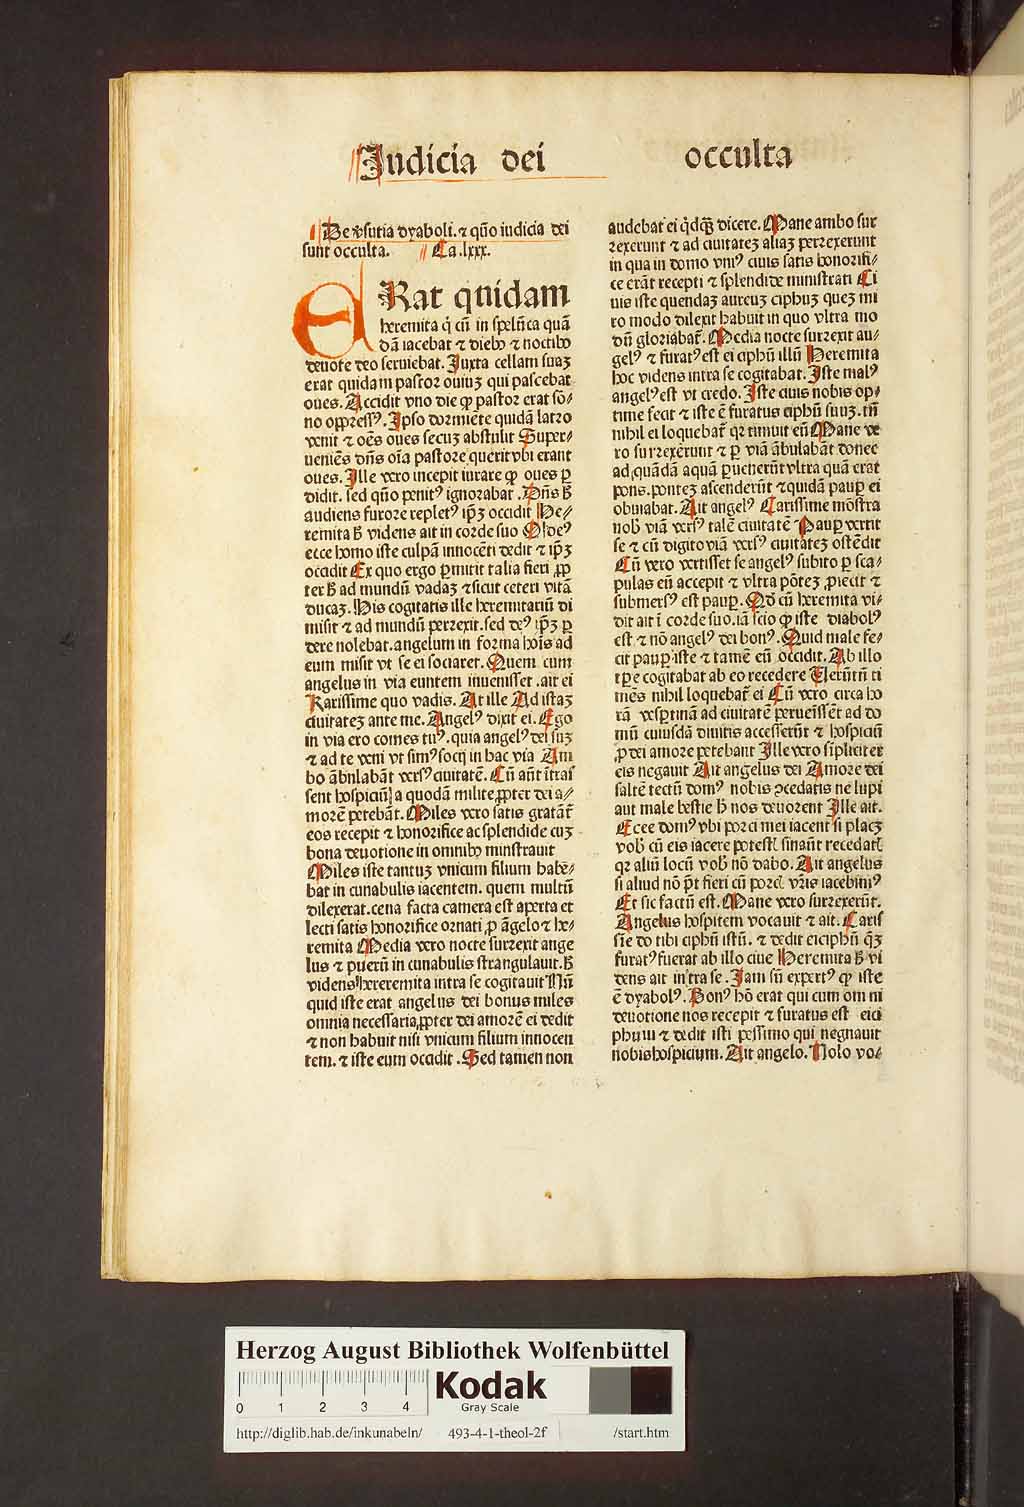 Iudicia dei occulta
De v̓sutia dyaboli. ⁊ qũo iudicia dei
sunt occulta. Ca .lxxx.
ERat quidam
heremita q̇ cũ in spelũca quã
dã iacebat ⁊ dieb⁹ ⁊ noctib⁹
deuote deo seruiebat. Juxta cellam suaꝫ
erat quidam pastor ouiuꝫ qui pascebat
oues. Accidit vno die ꝙ pastor erat sõ⸗
no oppress⁹. Ipso dormiẽte quidã latro
venit ⁊ oẽs oues secuꝫ abstulit Super⸗
ueniẽs dñs oĩa pastorẽ querit vbi erant
oues. Ille vero incepit iurare ꝙ oues ꝑ
didit. sed qũo penit⁹ ignorabat. Dñs h̓
audiens furore replet⁹ ip̃ꝫ occidit He⸗
remita h̓ videns ait in corde suo O de⁹
ecce homo iste culpã innocẽti dedit ⁊ ip̃ꝫ
occidit Ex quo ergo ꝑmittit talia fieri ꝓp
ter h̓ ad mundũ vadaꝫ ⁊sicut ceteri vitã
ducaꝫ. His cogitatis ille heremitariũ di
misit ⁊ ad mundũ perrexit. sed de⁹ ip̃ꝫ ꝑ
dere nolebat. angelum in forma hoĩs ad
eum misit vt se ei sociaret. Quem cum
angelus in via euntem inuenisset .ait ei
Karissime quo vadis. At ille Ad istaꝫ
ciuitateꝫ ante me. Angel⁹ dixit ei. Ego
in via ero comes tu⁹. quia angel⁹ dei suꝫ
⁊ ad te veni vt sim⁹ socij in hac via Am
bo ãbulabãt vers⁹ ciuitatẽ. Cũ aũt ĩtras
sent hospiciũ a quodã milite ꝓpter dei a⸗
morẽ petebãt. Miles vero satis gratãt̃
eos recepit ⁊ honorifice ac splendide cuꝫ
bona deuotione in omnib⁹ minstrauit
Miles iste tantuꝫ vnicum filium habẽ⸗
bat in cunabulis iacentem. quem multũ
dilexerat. cena facta camera est aperta et
lecti satis honorifice ornati ꝓ ãgelo ⁊ he⸗
remita Media vero nocte surrexit ange
lus ⁊ puerũ in cunabulis strangulauit. h̓
videns hereremita intra se cogitauit Nũ
quid iste erat angelus dei bonus miles
omnia necessaria ꝓpter dei amorẽ ei dedit
⁊ non habuit nisi vnicum filium innocen
tem. ⁊ iste eum occidit .Sed tamen non
audebat ei q̇dq̃ꝫ dicere. Mane ambo sur
rexerunt ⁊ ad ciuitateꝫ aliaꝫ perrexerunt
in qua in domo vni⁹ ciuis satis honorifi⸗
ce erãt recepti ⁊ splendide ministrati Ci
uis iste quendaꝫ aureuꝫ ciphuꝫ queꝫ mi
ro modo dilexit habuit in quo vltra mo
dũ gloriabat̃. Media nocte surrexit an⸗
gel⁹ ⁊ furat⁹ est ei ciphũ illũ Heremita
hoc videns intra se cogitabat. Iste mal⁹
angel⁹ est vt credo. Iste ciuis nobis op⸗
time fecit ⁊ iste ẽ furatus ciphũ suuꝫ. tñ
nihil ei loquebat̃ qꝛ timuit eũ Mane ve
ro surrexerunt ⁊ ꝑ viã ãbulabãt donec
ad quãdã aquã ꝑuenerũt vltra quã erat
pons. ponteꝫ ascenderũt ⁊quidã pauꝑ ei
obuiabat. Ait angel⁹ Carissime mõstra
nob̓ viã vers⁹ talẽ ciuitatẽ Pauꝑ vertit
se ⁊ cũ digito viã vers⁹ ciuitateꝫ ostẽdit
Cũ vero vertisset se angel⁹ subito ꝑ sca⸗
pulas eũ accepit ⁊ vltra põteꝫ ꝓiecit ⁊
submers⁹ est pauꝑ. Qd̓ cũ heremita vi⸗
dit ait ĩ corde suo. iã scio ꝙ iste diabol⁹
est ⁊ nõ angel⁹ dei bon⁹. Quid male fe⸗
cit pauꝑ iste ⁊ tamẽ eũ occidit. Ab illo
tp̃e cogitabat ab eo recedere Uerũtñ ti
mẽs nihil loquebat̃ ei Cũ vero circa ho
rã vesꝑtinã ad ciuitatẽ peruẽissẽt ad do
mũ cuiusdã diuitis accesserũt ⁊ hospiciũ
ꝓ dei amore petebant Ille vero sĩpliciter
eis negauit Ait angelus dei Amore dei
saltẽ tectũ dom⁹ nobis ꝯcedatis ne lupi
aut male bestie h̓ nos deuorent Ille ait.
Ecce dom⁹ vbi porci mei iacent si placꝫ
vob̓ cũ eis iacere potestꝭ sinaũt recedatꝭ
qꝛ aliũ locũ vob̓ nõ dabo. Ait angelus
si aliud nõ p̃t fieri cũ porcꝭ vr̃is iacebim⁹
Et sic factũ est. Mane vero surrexerũt.
Angelus hospitem vocauit ⁊ ait. Caris
sĩe do tibi ciphũ istũ. ⁊ dedit ei ciphũ q̃ꝫ
furat⁹ fuerat ab illo ciue Heremita h̓ vi
dens ait intra se. Jam sũ expert⁹ ꝙ iste
ẽ dyabol⁹. Bon⁹ hõ erat qui cum om ni
deuotione nos recepit ⁊ furatus est ei ci
phum ⁊ dedit isti pessimo qui negnauit
nobis hospicium. Ait angelo. Nolo vo⸗
Herzog August Bibliothek Wolfenbüttel
0 1 2 3 4
Kodak
Gray Scale
http://diglib.hab.de/inkunabeln/ 493-4-1-theol-2f /start.htm